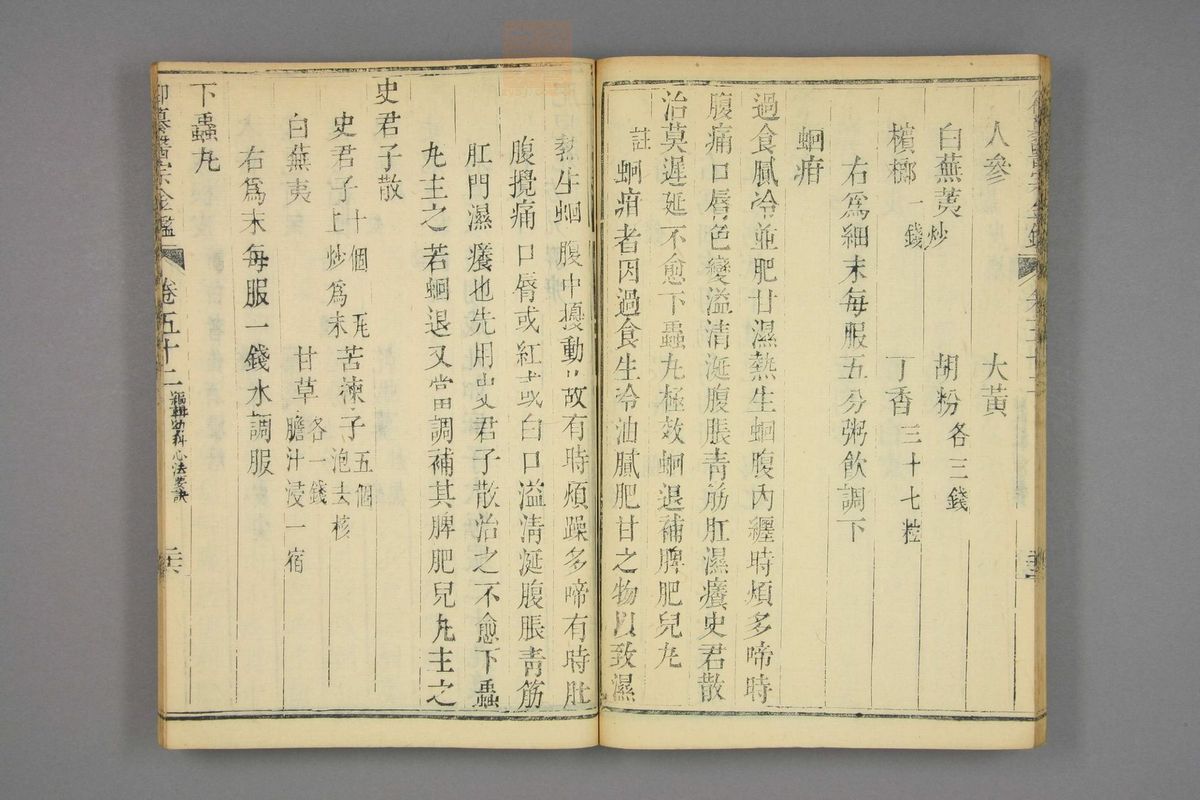 人參 大黃
白蕪荑炒 胡粉各三錢
檳榔一錢 丁香三十七粒
右為細末每服五分粥飲調下
蛔疳
過食膩冷並肥甘濕熱生蛔腹內纏時煩多啼時
腹痛口唇色變溢清涎腹脹青筋肛濕癢史君散
治莫遲延不愈下蟲丸極效蛔退補脾肥兒丸
註蛔疳者因過食生冷油膩肥甘之物以致濕
熱生蛔腹中擾動故有時煩躁多啼有時肚
腹攪痛口唇或紅或白口溢清涎腹脹青筋
肛門濕癢也先用史君子散治之不愈下蟲
丸主之若蛔退又當調補其脾肥兒丸主之
史君子散
史君子十個瓦上炒為末 苦楝子五個泡去核
白蕪荑 甘草各一錢膽汁浸一宿
右為末每服一錢水調服
下蟲丸
御纂醫宗金鑑 卷五十二 編輯幼科心法要訣